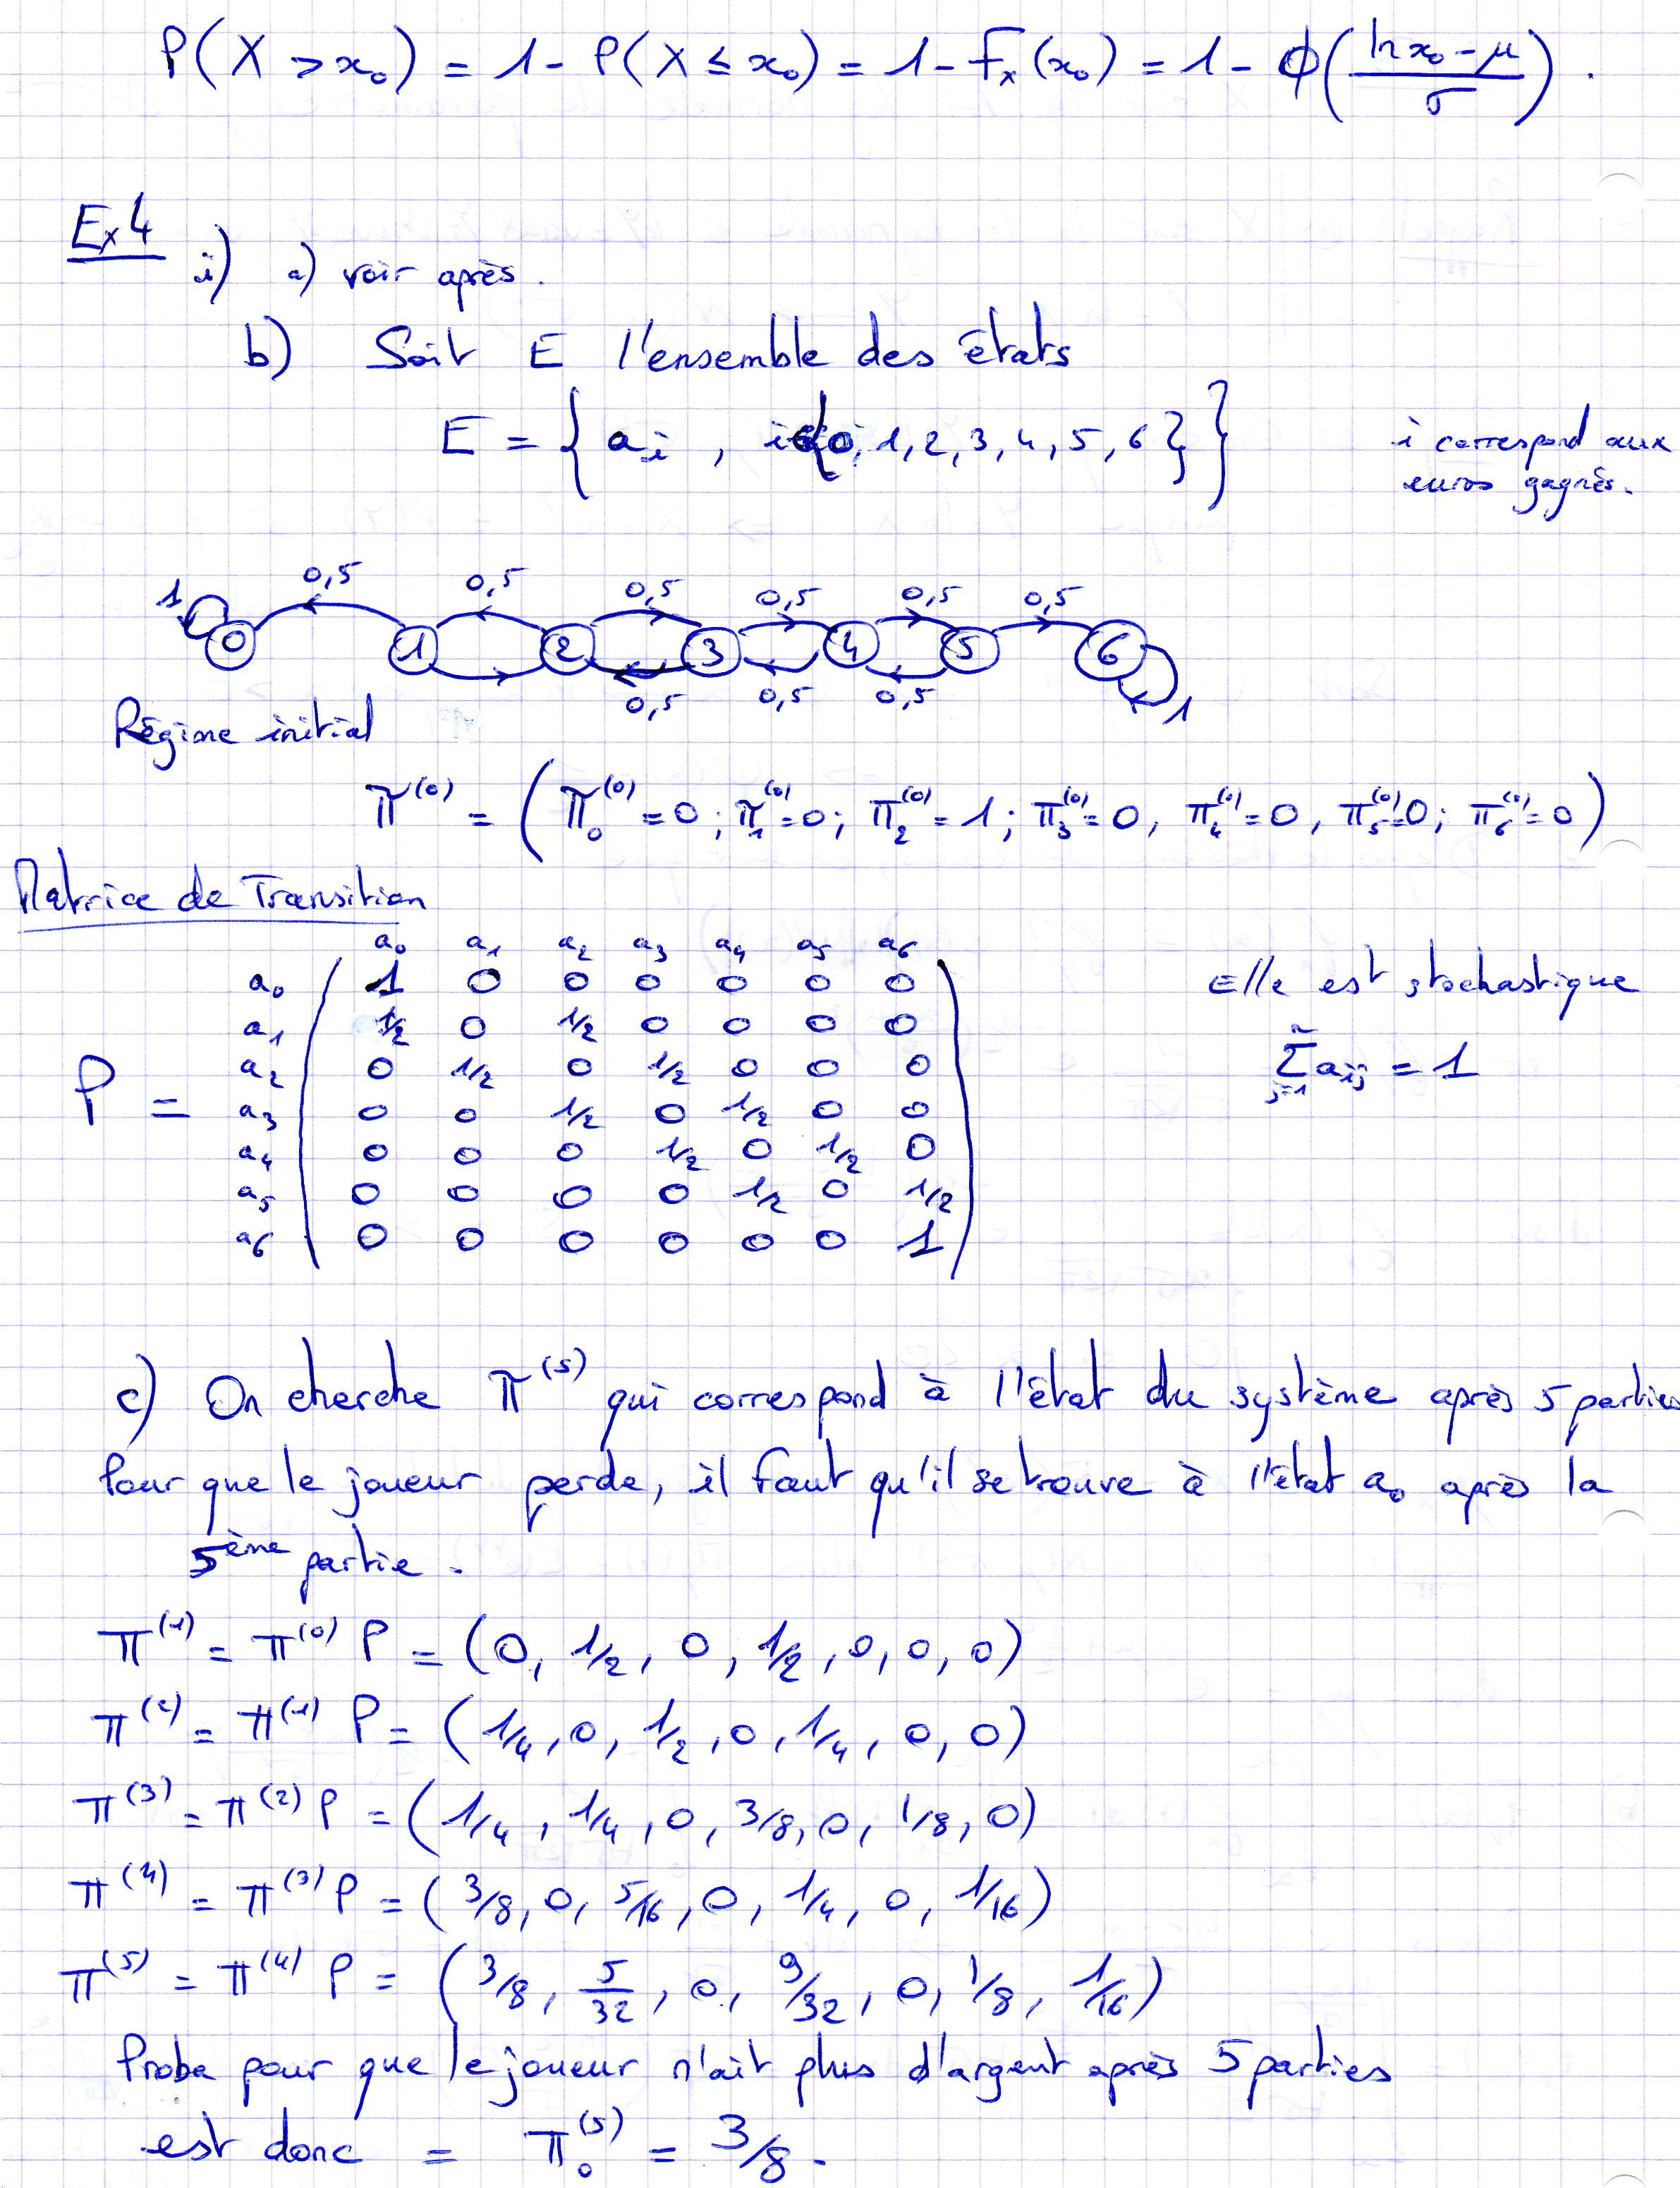 P(X > x₀) = 1 - P(X ≤ x₀) = 1 - Fₓ(x₀) = 1 - ϕ((ln x₀ - μ)/σ).
Ex 4
i) a) voir après.
b) Soit E l'ensemble des états
E = { aᵢ , i∈{0, 1, 2, 3, 4, 5, 6 } } i correspond aux
euros gagnés.
0,5 0,5 0,5 0,5 0,5 0,5
1 0 1 2 3 4 5 6 1
0,5 0,5 0,5
Régime initial
π⁽⁰⁾ = ( π₀⁽⁰⁾ = 0 ; π₁⁽⁰⁾ = 0 ; π₂⁽⁰⁾ = 1 ; π₃⁽⁰⁾ = 0 , π₄⁽⁰⁾ = 0 , π₅⁽⁰⁾ = 0 ; π₆⁽⁰⁾ = 0 )
Matrice de Transition
a₀ a₁ a₂ a₃ a₄ a₅ a₆
a₀ 1 0 0 0 0 0 0 Elle est stochastique
a₁ 1/2 0 1/2 0 0 0 0
P = a₂ 0 1/2 0 1/2 0 0 0 ∑ⁿⱼ₌₁ aᵢⱼ = 1
a₃ 0 0 1/2 0 1/2 0 0
a₄ 0 0 0 1/2 0 1/2 0
a₅ 0 0 0 0 1/2 0 1/2
a₆ 0 0 0 0 0 0 1
c) On cherche π⁽⁵⁾ qui correspond à l'état du système après 5 parties
Pour que le joueur perde, il faut qu'il se trouve à l'état a₀ après la
5ème partie.
π⁽¹⁾ = π⁽⁰⁾ P = (0, 1/2, 0, 1/2, 0, 0, 0)
π⁽²⁾ = π⁽¹⁾ P = (1/4, 0, 1/2, 0, 1/4, 0, 0)
π⁽³⁾ = π⁽²⁾ P = (1/4, 1/4, 0, 3/8, 0, 1/8, 0)
π⁽⁴⁾ = π⁽³⁾ P = (3/8, 0, 5/16, 0, 1/4, 0, 1/16)
π⁽⁵⁾ = π⁽⁴⁾ P = (3/8, 5/32, 0, 9/32, 0, 1/8, 1/16)
Proba pour que le joueur n'ait plus d'argent après 5 parties
est donc = π₀⁽⁵⁾ = 3/8.